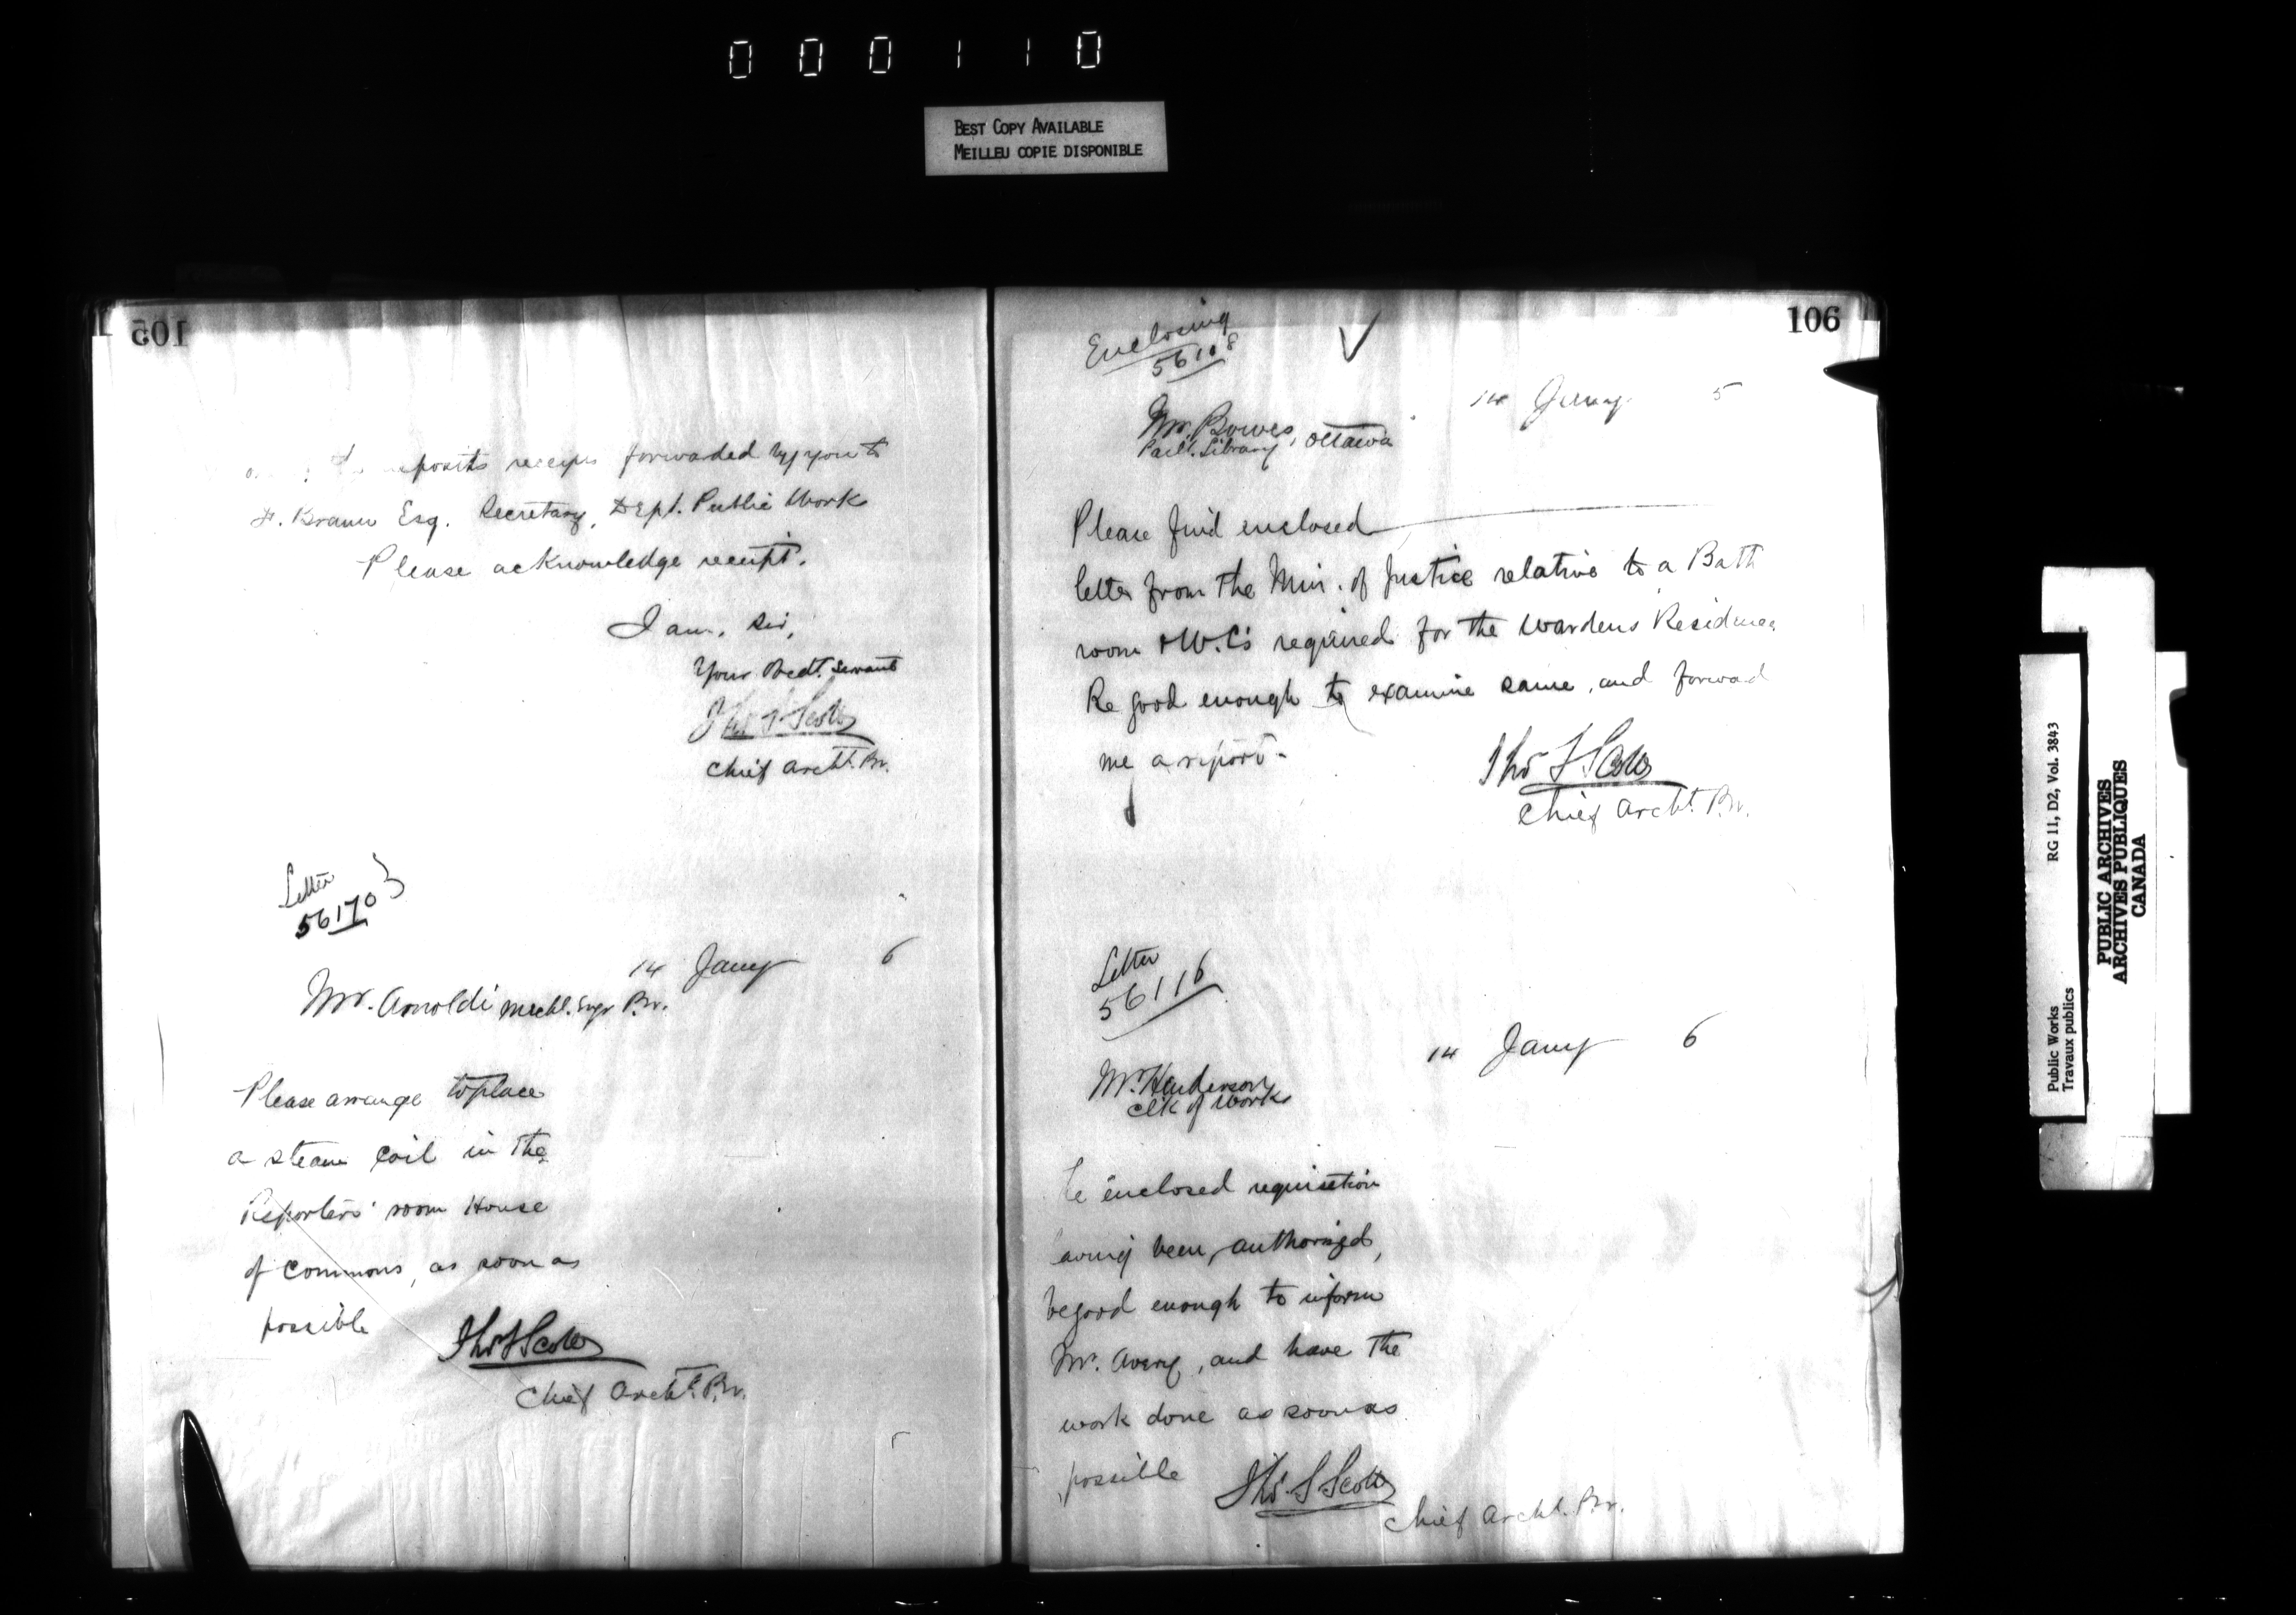 000110
BEST COPY AVAILABLE
MEILLEU COPIE DISPONIBLE
105
deposits receipts forwarded by you to
F. Braun Esq. Secretary, Dept. Public Work
Please acknowledge receipt.
I am, Sir,
Your Obedt. Servant
Thos S Scott
Chief Archt. P.W.
Letter
56170
14 Jany 6
Mr. Arnoldi Mechl. Engr P.W.
Please arrange to place
a steam coil in the
Reporters' room House
of Commons, as soon as
possible
Thos S Scott
Chief Archt. P.W.
106
Enclosing
56108
14 Jany 5
Mr. Bowes,
Parlt. Library, Ottawa
Please find enclosed
letter from the Min. of Justice relative to a Bath
room & W.C's required for the Wardens Residence
Be good enough to examine same, and forward
me a report-
Thos S Scott
Chief Archt. P.W.
Letter
56116
14 Jany 6
Mr. Henderson
Clk of Works
enclosed requisition
aving been authorized,
be good enough to inform
Mr. Avery, and have the
work done as soon as
possible
Thos. S Scott
Chief Archt. P.W.
Public Works RG 11, D2, Vol. 3843
Travaux publics
PUBLIC ARCHIVES
ARCHIVES PUBLIQUES
CANADA